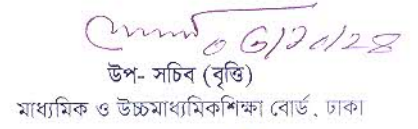 উপ- সচিব (বৃত্তি)
মাধ্যমিক ও উচ্চমাধ্যমিকশিক্ষা বোর্ড, ঢাকা